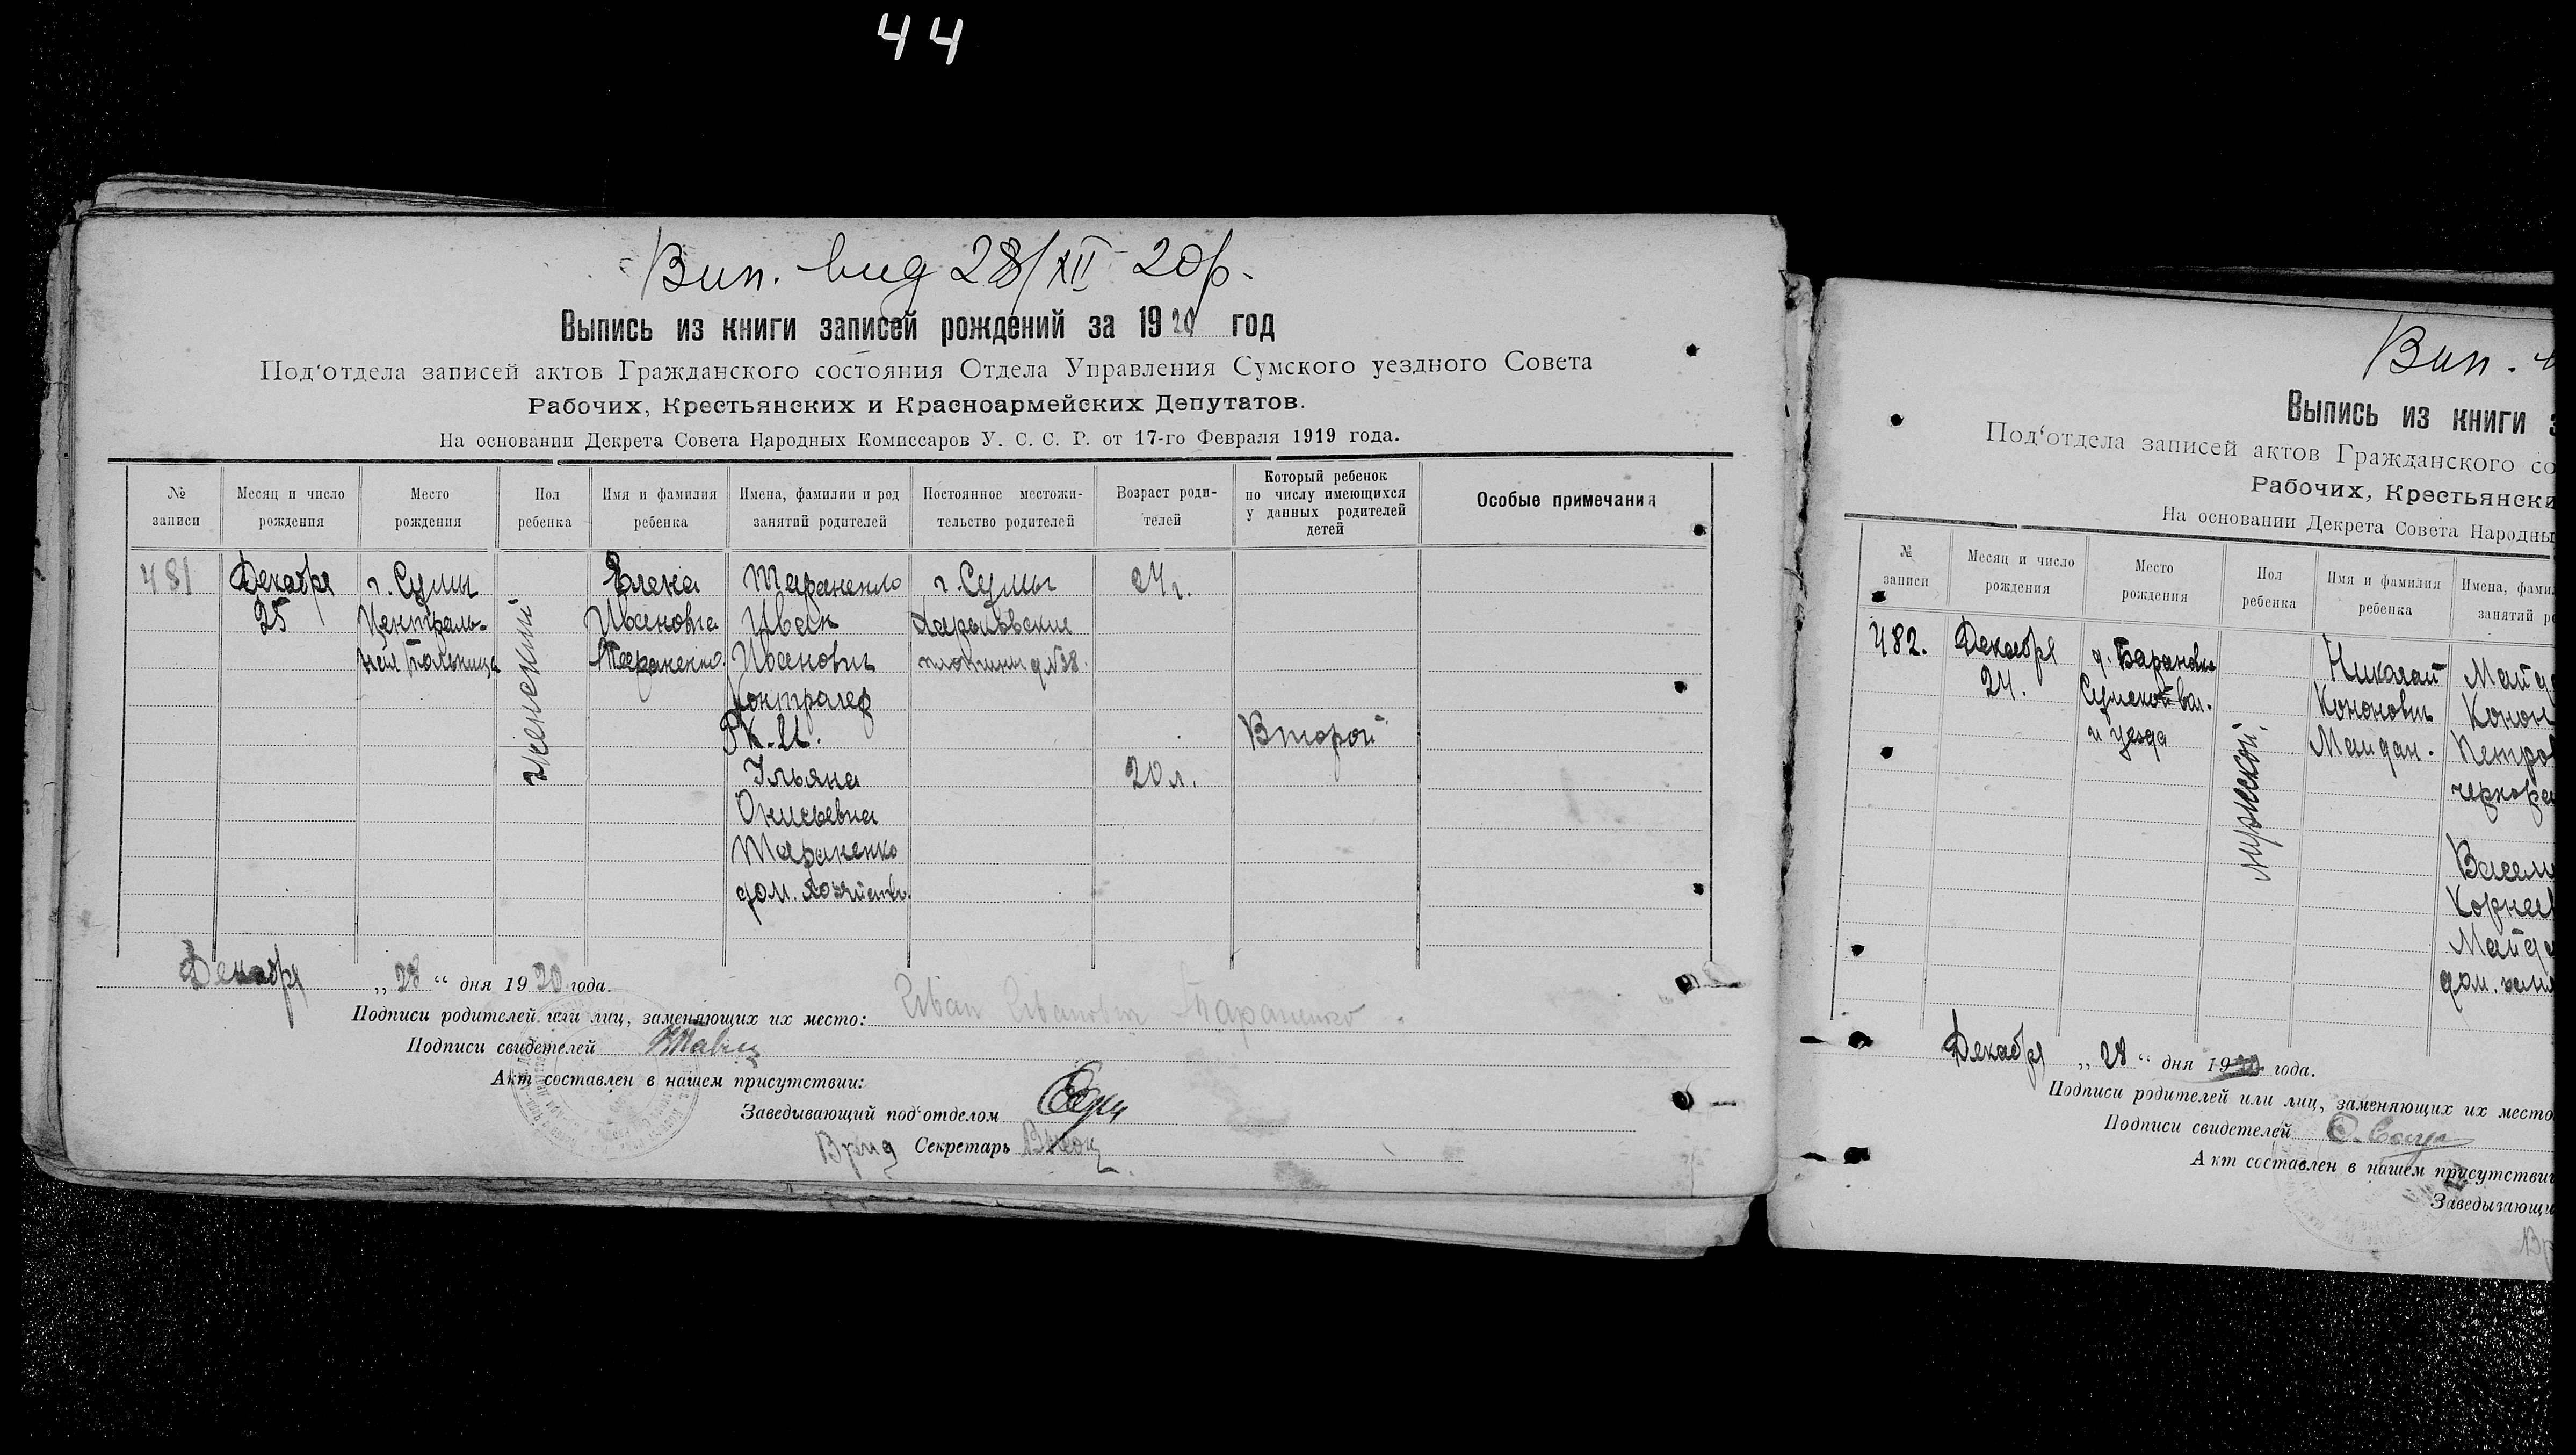 44
Вип. вид 28/XII 20р.
Выпись из книги записей рождений за 1920 год
Под‘отдела записей актов Гражданского состояния Отдела Управления Сумского уездного Совета
Рабочих, Крестьянских и Красноармейских Депутатов.
На основании Декрета Совета Народных Комиссаров У. С. С. Р. от 17-го Февраля 1919 года.
№ записи
Месяц и число рождения
Место рождения
Пол ребенка
Имя и фамилия ребенка
Имена, фамилии и род занятий родителей
Постоянное местожительство родителей
Возраст родителей
Который ребенок по числу имеющихся у данных родителей детей
Особые примечания
481
Декабря
25
г. Сумы
Централь-
ная больница
женский
Елена
Ивановна
Тараненко
Тараненко
Иван
Иванович
Контролер
Р.К.И.
Ульяна
Тараненко
дом. хозяйств.
г. Сумы
Харьковские
д №38.
24г.
20 л.
Второй
Декабря „28“ дня 1920 года.
Подписи родителей или лиц, заменяющих их место: Иван Иванович Тараненко
Подписи свидетелей
Акт составлен в нашем присутствии:
Заведывающий под‘отделом
Врид Секретарь
Вип.
Выпись из книги
Под‘отдела записей актов Гражданского со
Рабочих, Крестьянски
На основании Декрета Совета Народны
№ записи
Месяц и число рождения
Место рождения
Пол ребенка
Имя и фамилия ребенка
Имена, фами
занятий р
482.
Декабря
24.
д. Барановка
Сумской вол.
и уезда
мужской.
Николай
Кононович
Майдан.
Майд
Конон
Петров
чернора
Васили
Корнее
Майда
дом.
Декабря „28“ дня 1920 года.
Подписи родителей или лиц, заменяющих их место
Подписи свидетелей
Акт составлен в нашем присутстви
Заведывающи
Вр